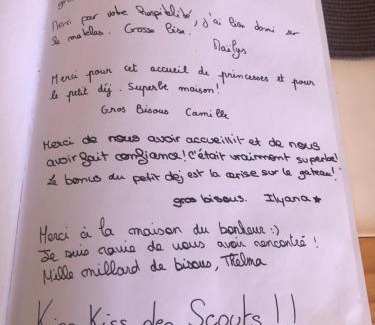 Merci par votre hospitalité, j'ai bien dormi sur
le matelas. Grosse bise.
Maïlys
Merci pour cet accueil de princesses et pour
le petit déj. Superbe maison!
Gros Bisous Camille
Merci de nous avoir accueillit et de nous
avoir fait confiance! C'était vraiment superbe!
Le bonus du petit dej est la cerise sur le gateau!
gros bisous. Ilyana★
Merci à la maison du bonheur :)
Je suis ravie de vous avoir rencontré !
Mille milliard de bisous, Thelma
Kiss des Scouts !!